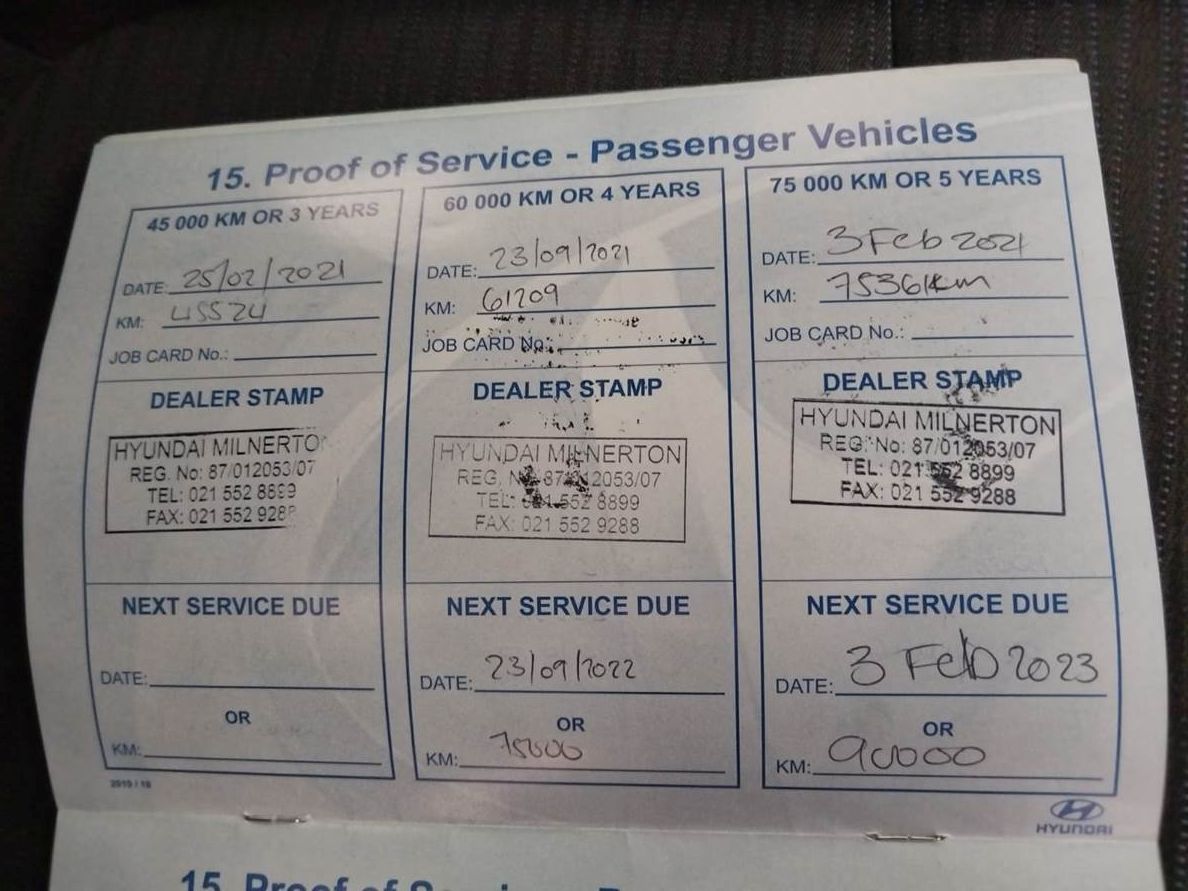 15. Proof of Service - Passenger Vehicles
45 000 KM OR 3 YEARS
DATE: 25/02/2021
KM: 45524
JOB CARD No.:
DEALER STAMP
HYUNDAI MILNERTO
REG. No: 87/012053/07
TEL: 021 552 8899
FAX: 021 552 928
NEXT SERVICE DUE
DATE:
OR
KM:
2019 / 10
60 000 KM OR 4 YEARS
DATE: 23/09/2021
KM: 61209
JOB CARD No.:
DEALER STAMP
HYUNDAI MILNERTON
REG. No: 87/012053/07
TEL: 021 552 8899
FAX: 021 552 9288
NEXT SERVICE DUE
DATE: 23/09/2022
OR
KM: 75000
75 000 KM OR 5 YEARS
DATE: 3 Feb 2021
KM: 75361km
JOB CARD No.:
DEALER STAMP
HYUNDAI MILNERTON
REG. No: 87/012053/07
TEL: 021 552 8899
FAX: 021 552 9288
NEXT SERVICE DUE
DATE: 3 Feb 2023
OR
KM: 90000
HYUNDAI
15. Proof of